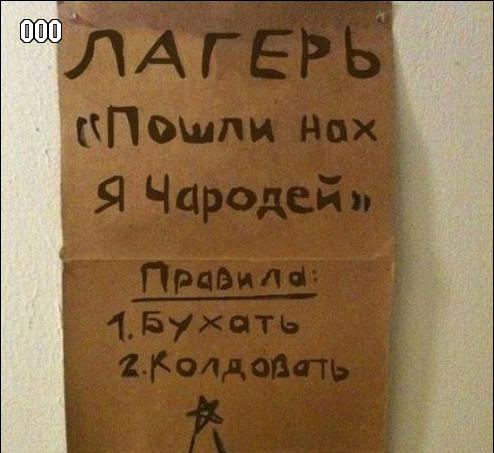 000
ЛАГЕРЬ
«Пошли нах
Я Чародей»
Правила:
1. Бухать
2. Колдовать